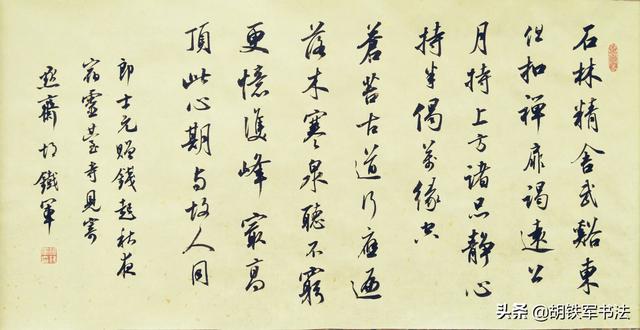 石林精舍武谿東
但扣禅扉謁遠公
月持上方諸品靜心
持半偈萬緣空
蒼苔古道行應遍
落木寒泉聽不窮
更憶雙峰最高
頂此心期與故人同
郎士元贈錢起秋夜
宿靈臺寺見寄
齋胡鐵軍
头条 @胡铁军书法